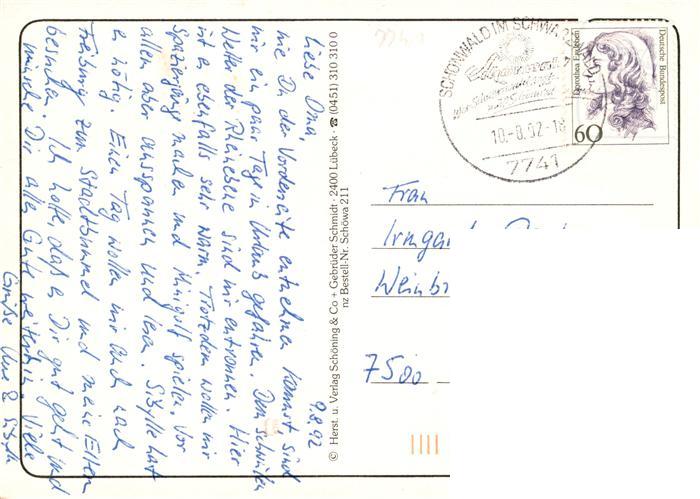 9.8.92
Liebe Oma,
wie Du der Vorderseite entnehmen kannst sind
wir ein paar Tage in Urlaub gefahren. Dem schwülen
Wetter der Rheinebene sind wir entronnen. Hier
ist es ebenfalls sehr warm. Trotzdem wollen wir
Spaziergänge machen und Minigolf spielen. Vor
allem aber ausspannen und lesen. Sibylle hat
es nötig. Einen Tag wollen wir auch nach
Freiburg zum Stadtbummel und meine Eltern
besuchen. Ich hoffe, daß es Dir gut geht und
wünsche Dir alles Gute weiterhin. Viele
Grüße Uwe & Sibylle
© Herst. u. Verlag Schöning & Co + Gebrüder Schmidt · 2400 Lübeck · ☎ (0451) 310 310 0
nz Bestell-Nr. Schöwa 211
SCHÖNWALD IM SCHWARZWALD
10.-8.92-18
7741
Dorothea Erxleben
Deutsche Bundespost
60
Frau
Irmga
Weinb
7500